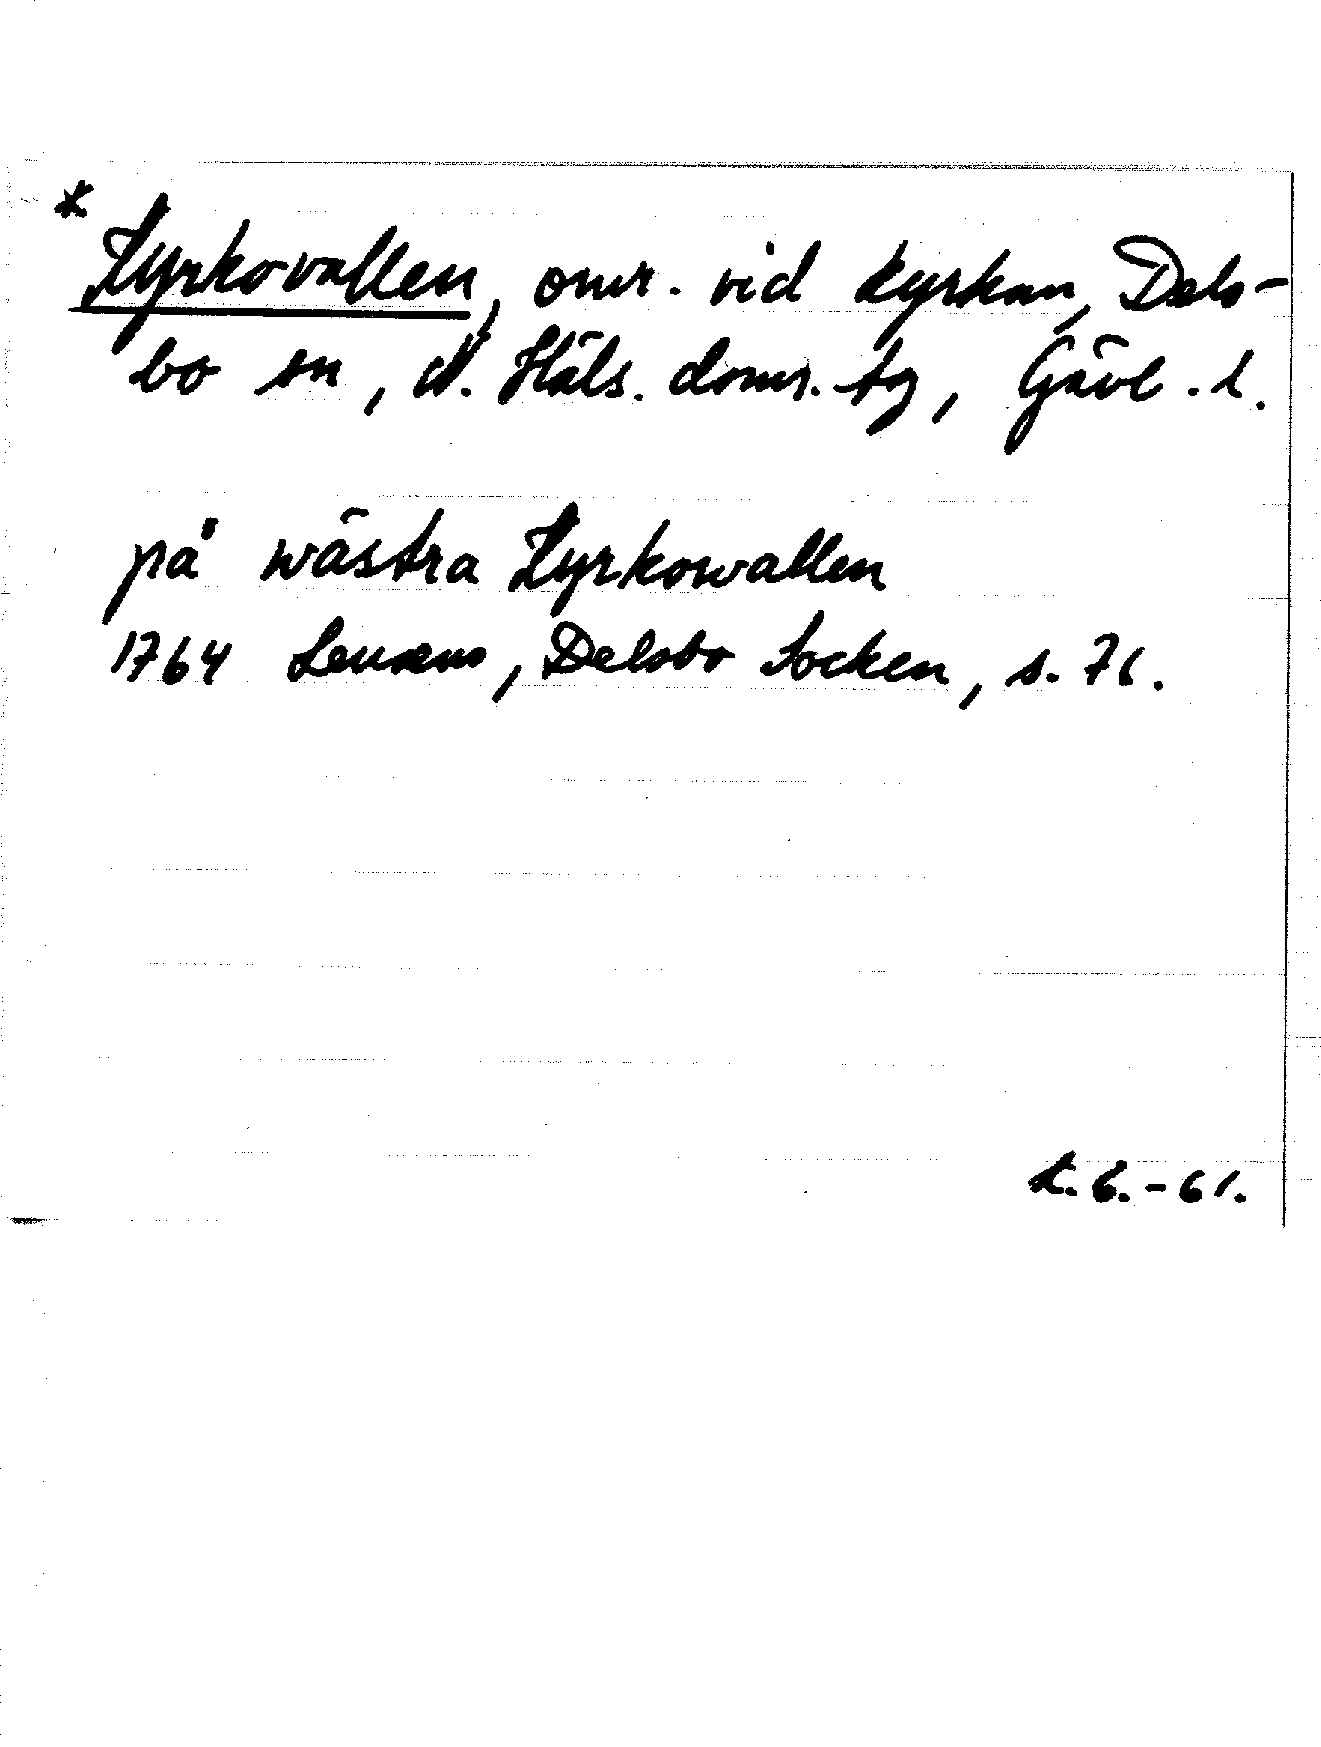 * Kyrkovallen, omr. vid kyrkan, Dels-
bo sn, N. Häls. doms. tg, Gävl. l.
på wästra Kyrkowallen
1764 Lenæus, Delsbo Socken, s. 76.
L. 6. - 61.